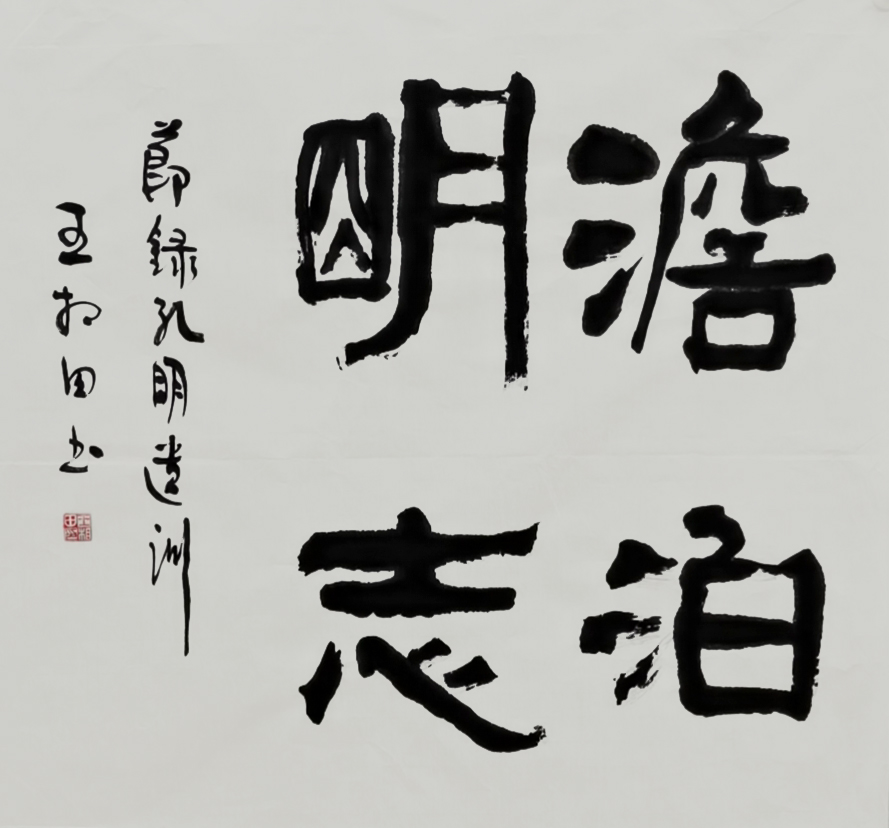 澹泊
明志
節録孔明遺訓
王相田书